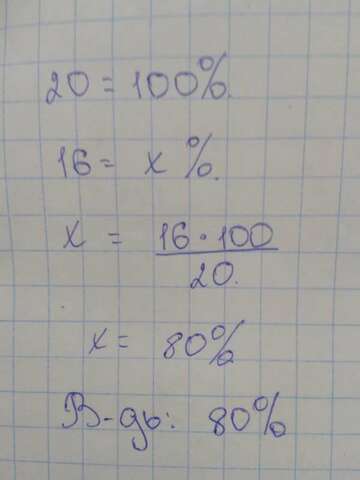 20 = 100%.
16 = x %.
x = 16 · 100
20.
x = 80%
В-дь: 80%